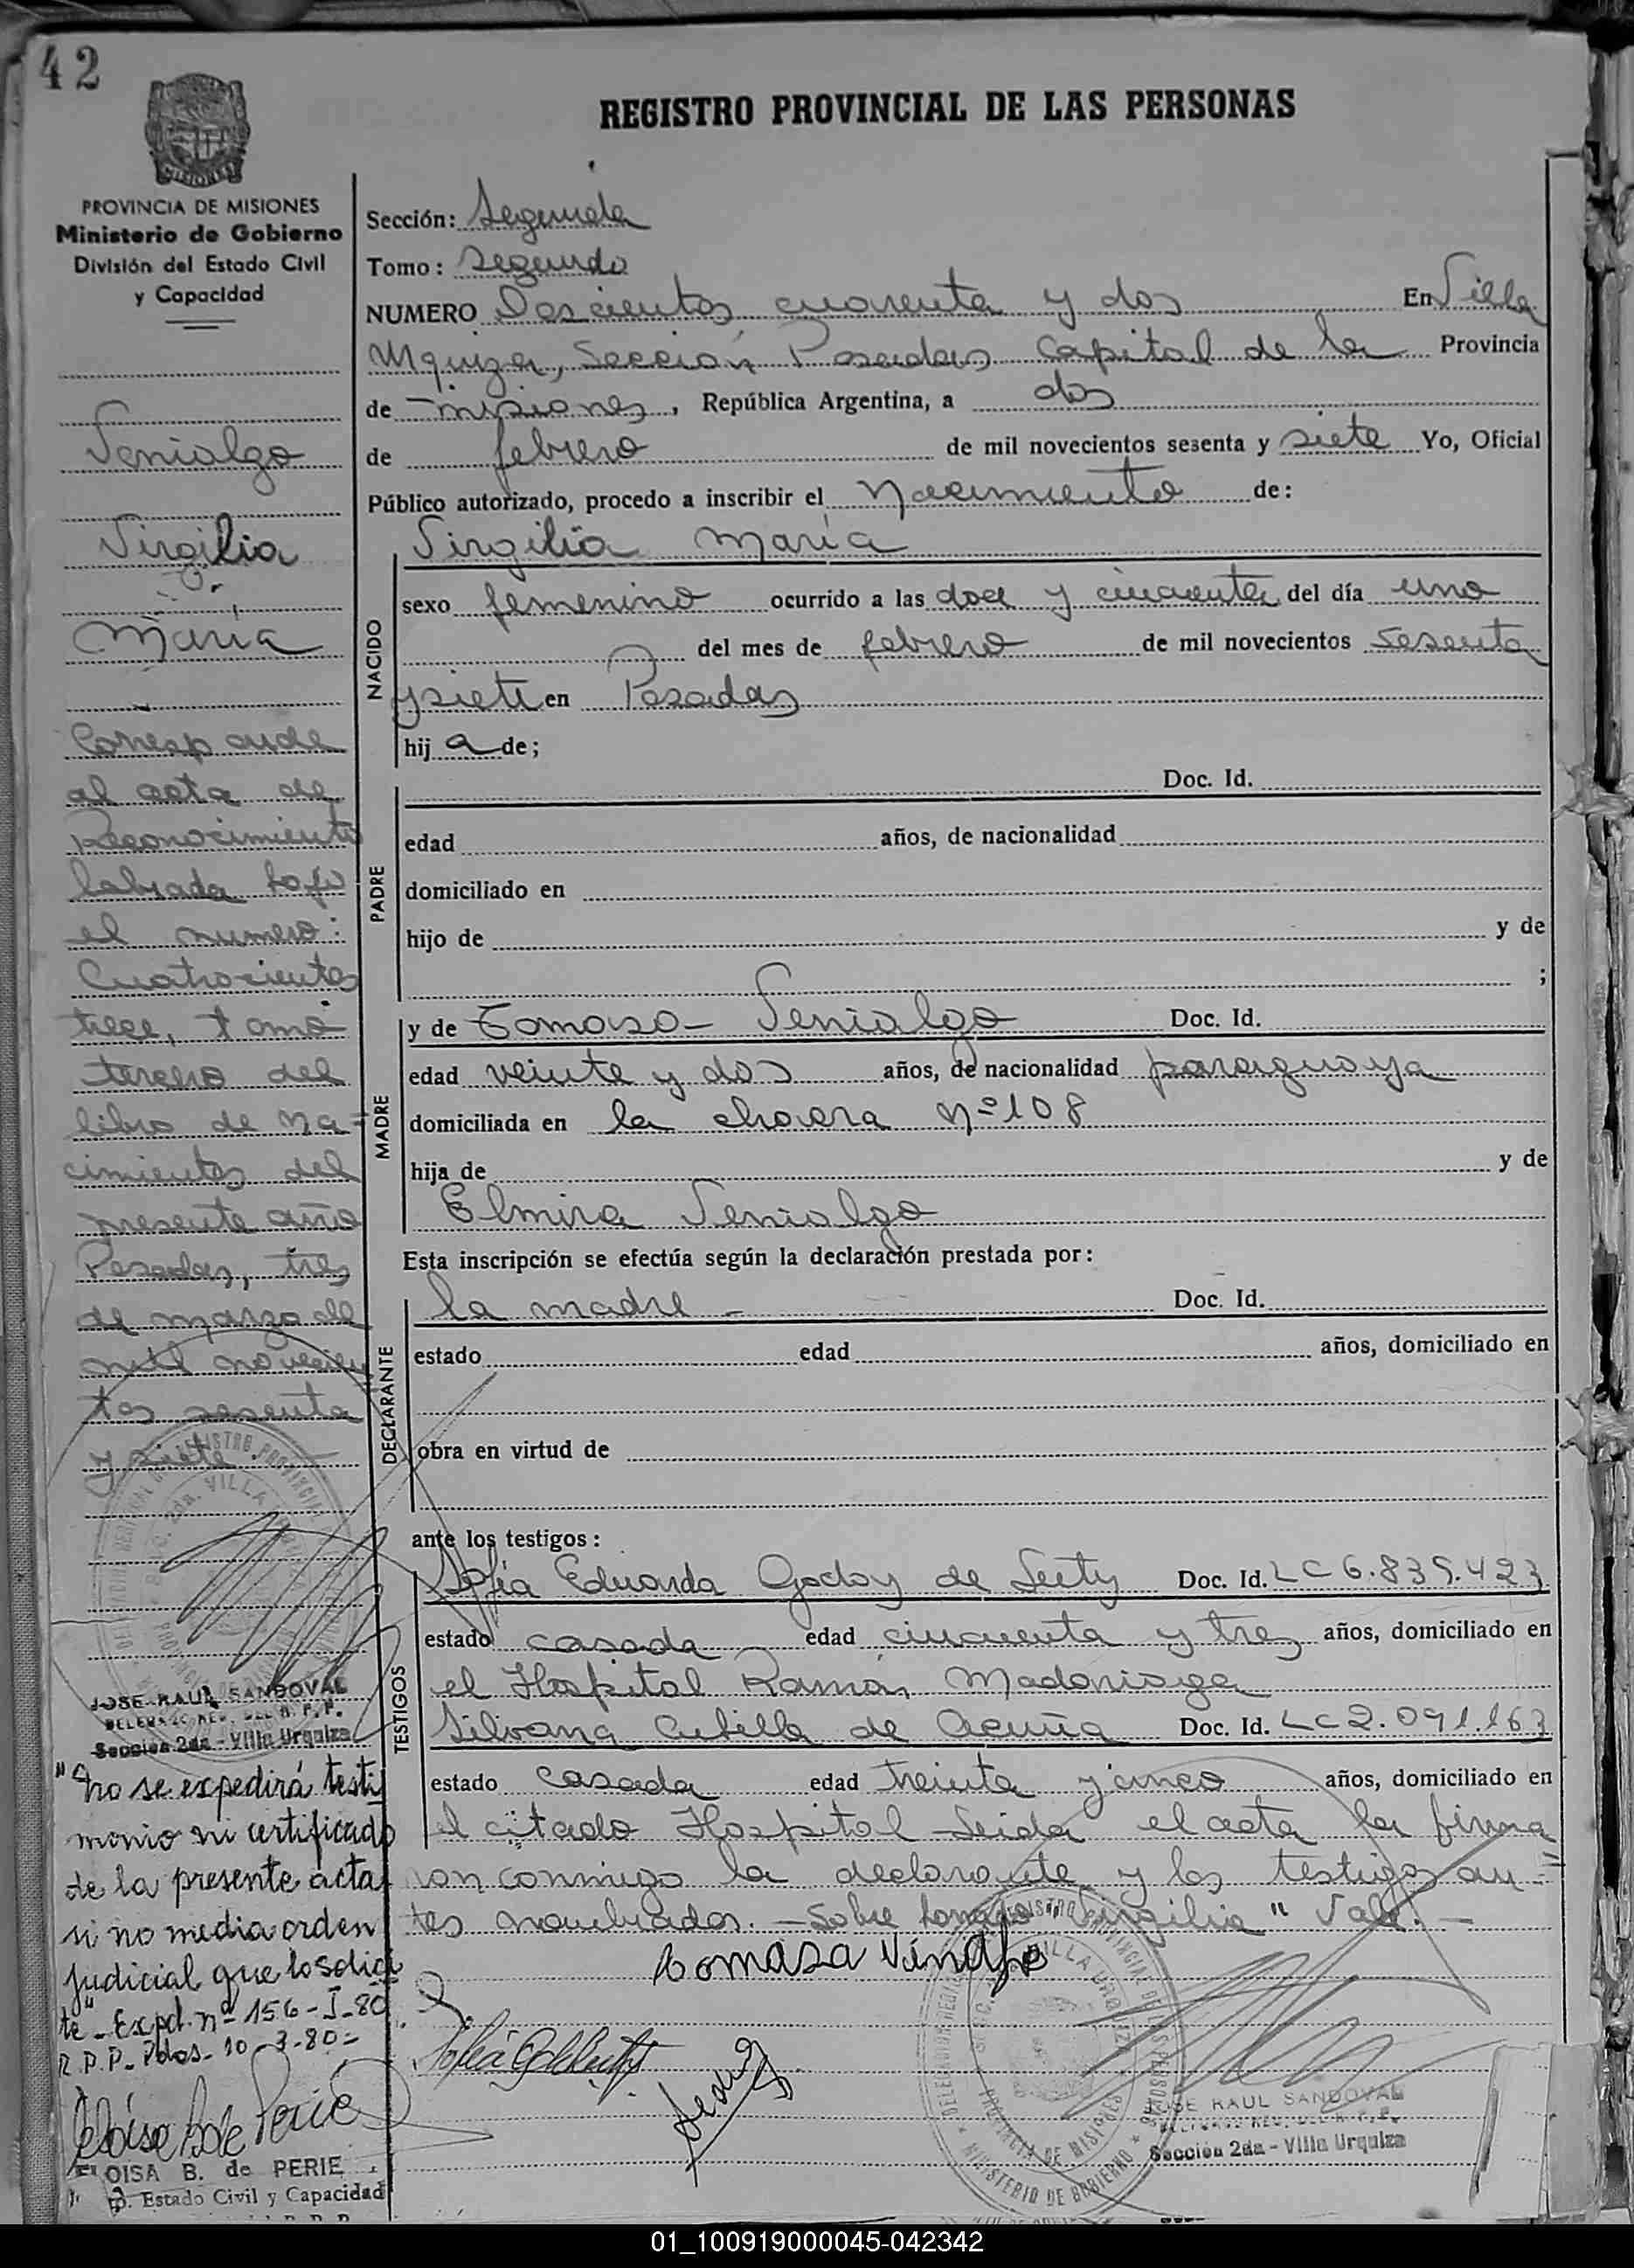 42
REGISTRO PROVINCIAL DE LAS PERSONAS
MISIONES
PROVINCIA DE MISIONES
Ministerio de Gobierno
División del Estado Civil
y Capacidad
Venialgo
Virgilia
María
Corresponde
al acta de
Reconocimiento
labrada bajo
el numero:
Cuatrocientos
trece, tomo
tercero del
libro de Na-
cimientos del
presente año
Posadas, tres
de marzo de
mil novecien
tos sesenta
y siete.
JOSE RAUL SANDOVAL
DELEGADO REG. DEL R. P. P.
Sección 2da - Villa Urquiza
"No se expedirá testi
monio ni certificado
de la presente acta
si no media orden
judicial que lo solici
te" - Expd. nº 156-I-80
R.P.P. Pdas. 10-3-80-
ELOISA B. de PERIE
Estado Civil y Capacidad
Sección: Segunda
Tomo: segundo
NUMERO Doscientos cuarenta y dos En Villa
Urquiza, Sección Posadas Capital de la Provincia
de misiones, República Argentina, a dos
de febrero de mil novecientos sesenta y siete Yo, Oficial
Público autorizado, procedo a inscribir el Nacimiento de:
Virgilia María
NACIDO
sexo femenino ocurrido a las doce y cincuenta del día uno
del mes de febrero de mil novecientos sesenta
y siete en Posadas
hij a de;
Doc. Id.
PADRE
edad años, de nacionalidad
domiciliado en
hijo de y de
;
MADRE
y de Tomasa - Venialgo Doc. Id.
edad veinte y dos años, de nacionalidad paraguaya
domiciliada en la chacra Nº 108
hija de y de
Elmira Venialgo
Esta inscripción se efectúa según la declaración prestada por:
DECLARANTE
la madre - Doc. Id.
estado edad años, domiciliado en
obra en virtud de
ante los testigos:
TESTIGOS
Sofia Eduarda Godoy de Doc. Id. LC 6.835.423
estado casada edad cincuenta y tres años, domiciliado en
el Hospital Ramón Madariaga
Silvana Cubilla de Acuña Doc. Id. LC 2.091.163
estado casada edad treinta y cinco años, domiciliado en
el citado Hospital Leida el acta la firma
ron conmigo la declarante y los testigos an-
tes nombrados. - Sobre borrado "Virgilia" Vale. -
Tomasa
JOSE RAUL SANDOVAL
DELEGADO REG. DEL R. P. P.
Sección 2da - Villa Urquiza
01_100919000045-042342